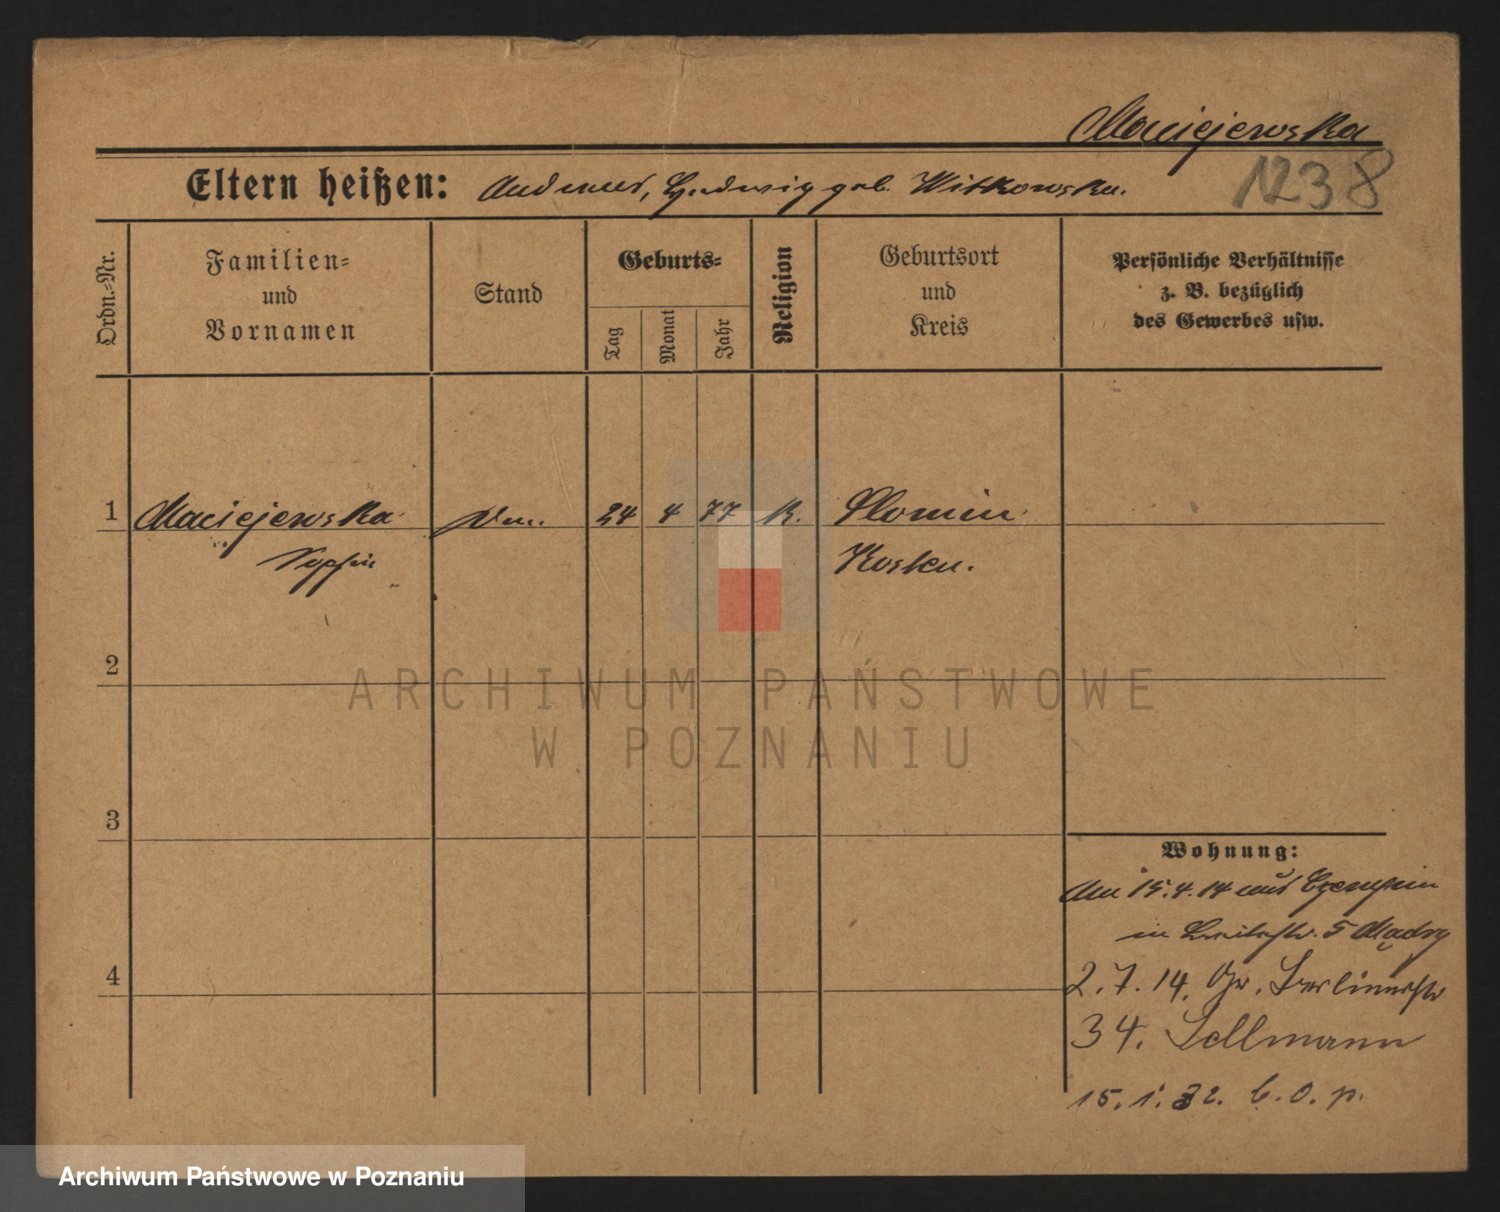 Maciejewska
1238
Eltern heißen: Andreas, Hedwig geb. Witkowska.
Ordn.-Nr.
Familien-
und
Vornamen
Stand
Geburts-
Tag
Monat
Jahr
Religion
Geburtsort
und
Kreis
Persönliche Verhältnisse
z. B. bezüglich
des Gewerbes usw.
1 Maciejewska 24 4 77 K. Slonin
Sophie Kosten.
2
ARCHIWUM PAŃSTWOWE
W POZNANIU
3
Wohnung:
Am 15.4.14 aus Czempin
in Breitestr. 5 Mądry
4
2.7.14. Gr. Berlinerstr
34. Sellmann
15.1.32. b.o.p.
Archiwum Państwowe w Poznaniu